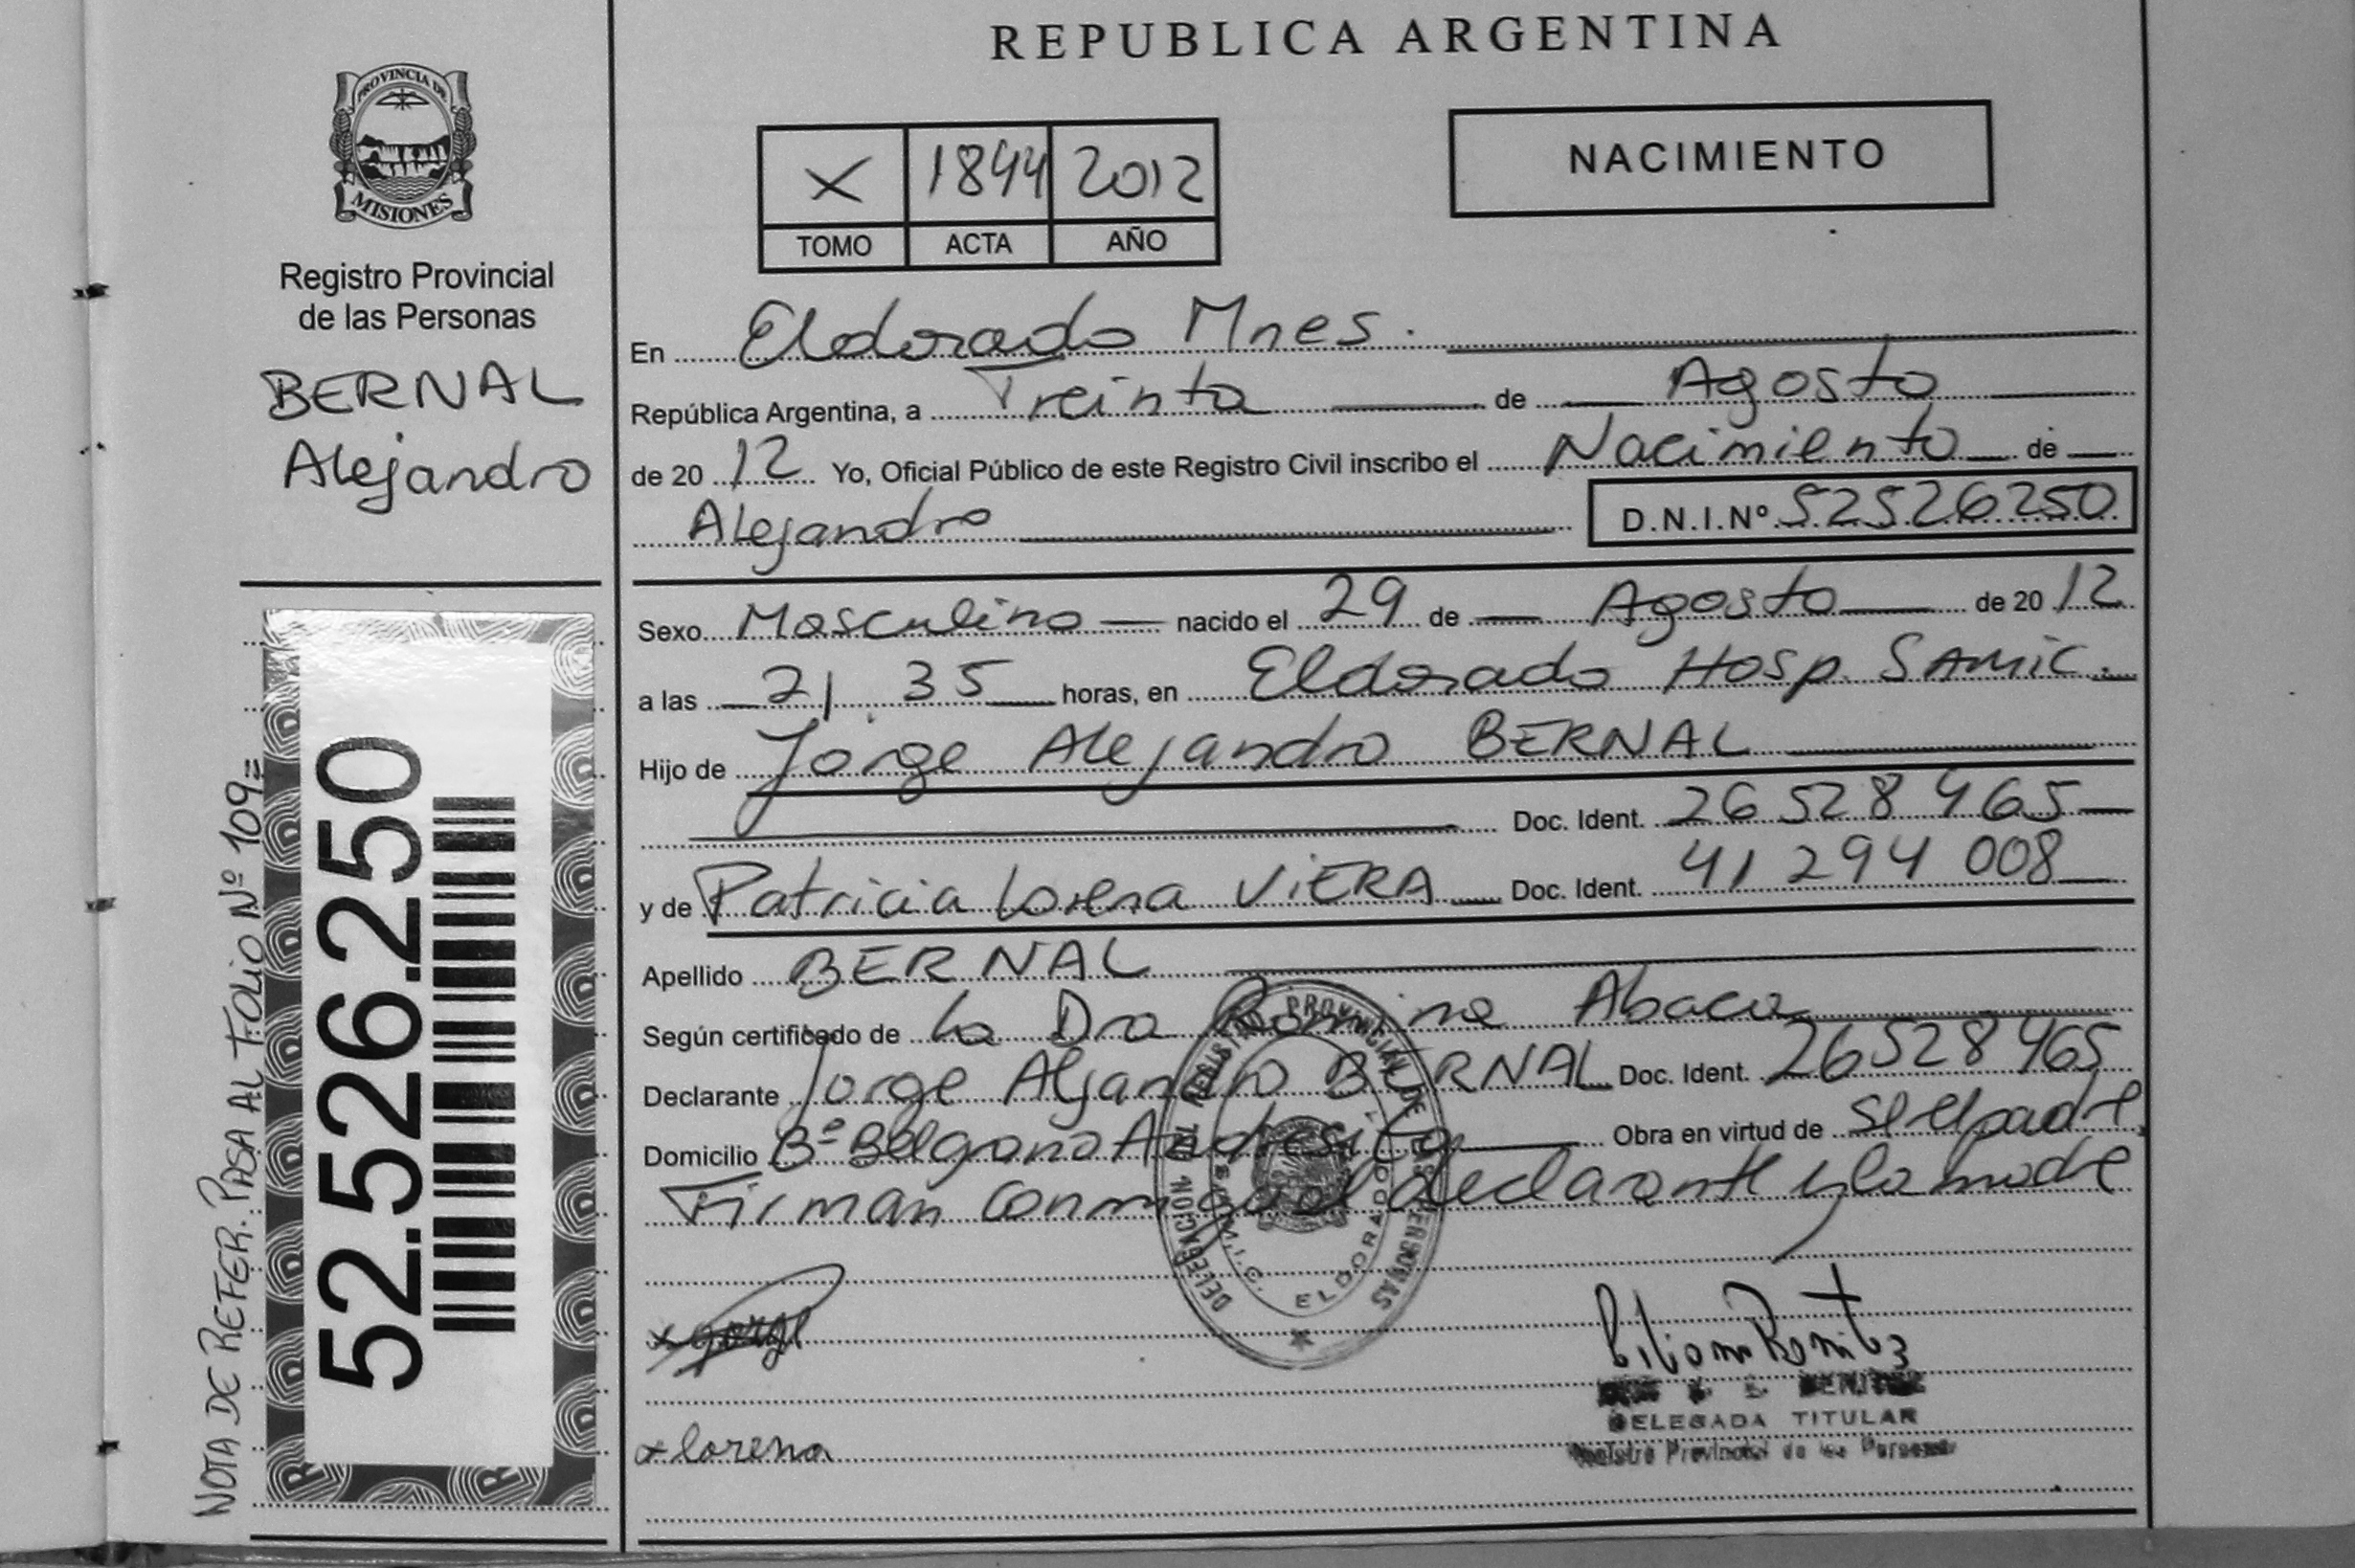 REPUBLICA ARGENTINA
PROVINCIA DE
MISIONES
Registro Provincial
de las Personas
BERNAL
Alejandro
X 1844 2012
TOMO ACTA AÑO
NACIMIENTO
En Eldorado Mnes.
República Argentina, a Treinta de Agosto
de 2012 Yo, Oficial Público de este Registro Civil inscribo el Nacimiento de
Alejandro D.N.I.Nº 52526250
Sexo Masculino nacido el 29 de Agosto de 2012
a las 21.35 horas, en Eldorado Hosp. SAMIC.
Hijo de Jorge Alejandro BERNAL
Doc. Ident. 26528465
y de Patricia Lorena ViERA Doc. Ident. 41 294 008
Apellido BERNAL
Según certificado de la Dra Romina Abaca
Declarante Jorge Aljandro BERNAL Doc. Ident. 26528465
Domicilio Bº Belgrano Andresito Obra en virtud de ser el padre
Firman conmigo el declarante y la madre
REGISTRO PROVINCIAL DE LAS PERSONAS
DELEGACION
ELDORADO
Jorge
Lorena
BENITEZ
DELEGADA TITULAR
Registro Provincial de las Personas
52.526.250
NOTA DE REFER. PASA AL FOLIO Nº 109=